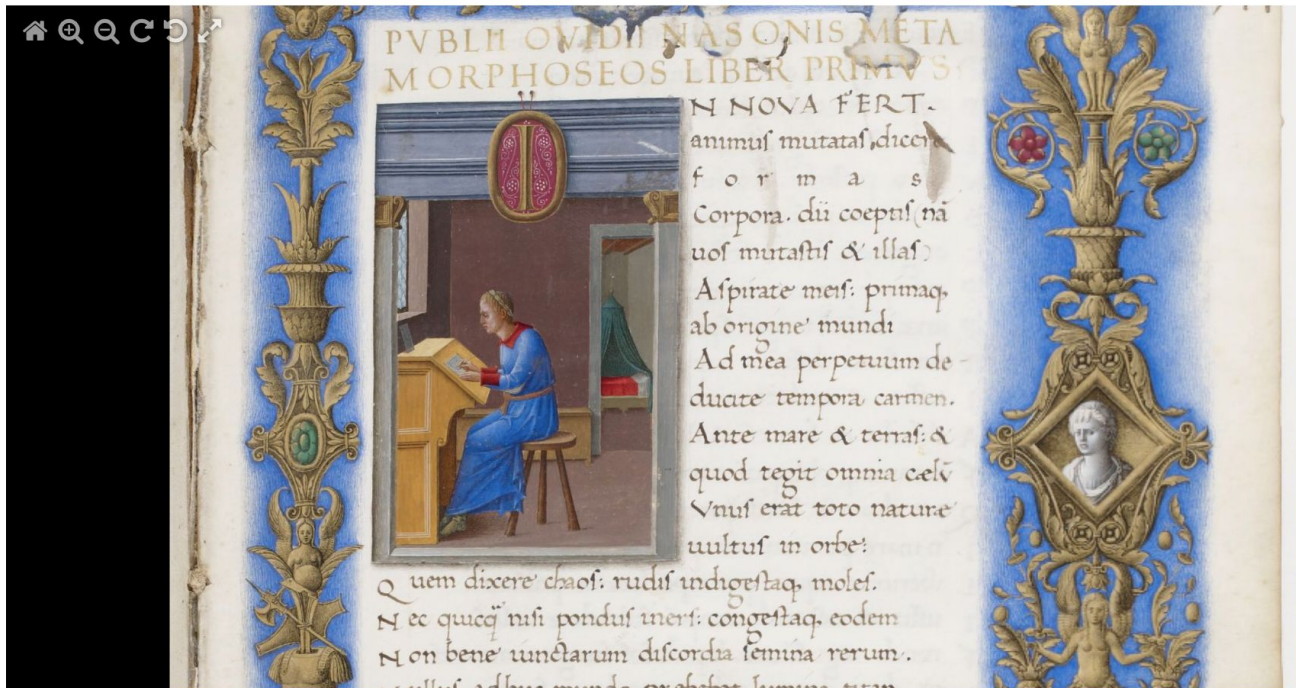 PVBLII OVIDII NASONIS META
MORPHOSEOS LIBER PRIMVS
I
N NOVA FERT.
animus mutatas dicere
formas
Corpora. dii coeptis (nā
uos mutastis & illas)
Aspirate meis: primaq,
ab origine mundi
Ad mea perpetuum de
ducite tempora carmen.
Ante mare & terras: &
quod tegit omnia cælū
Vnus erat toto naturæ
uultus in orbe:
Quem dixere chaos: rudis indigestaq, moles.
Nec quicq̄ nisi pondus iners: congestaq, eodem
Non bene iunctarum discordia semina rerum.